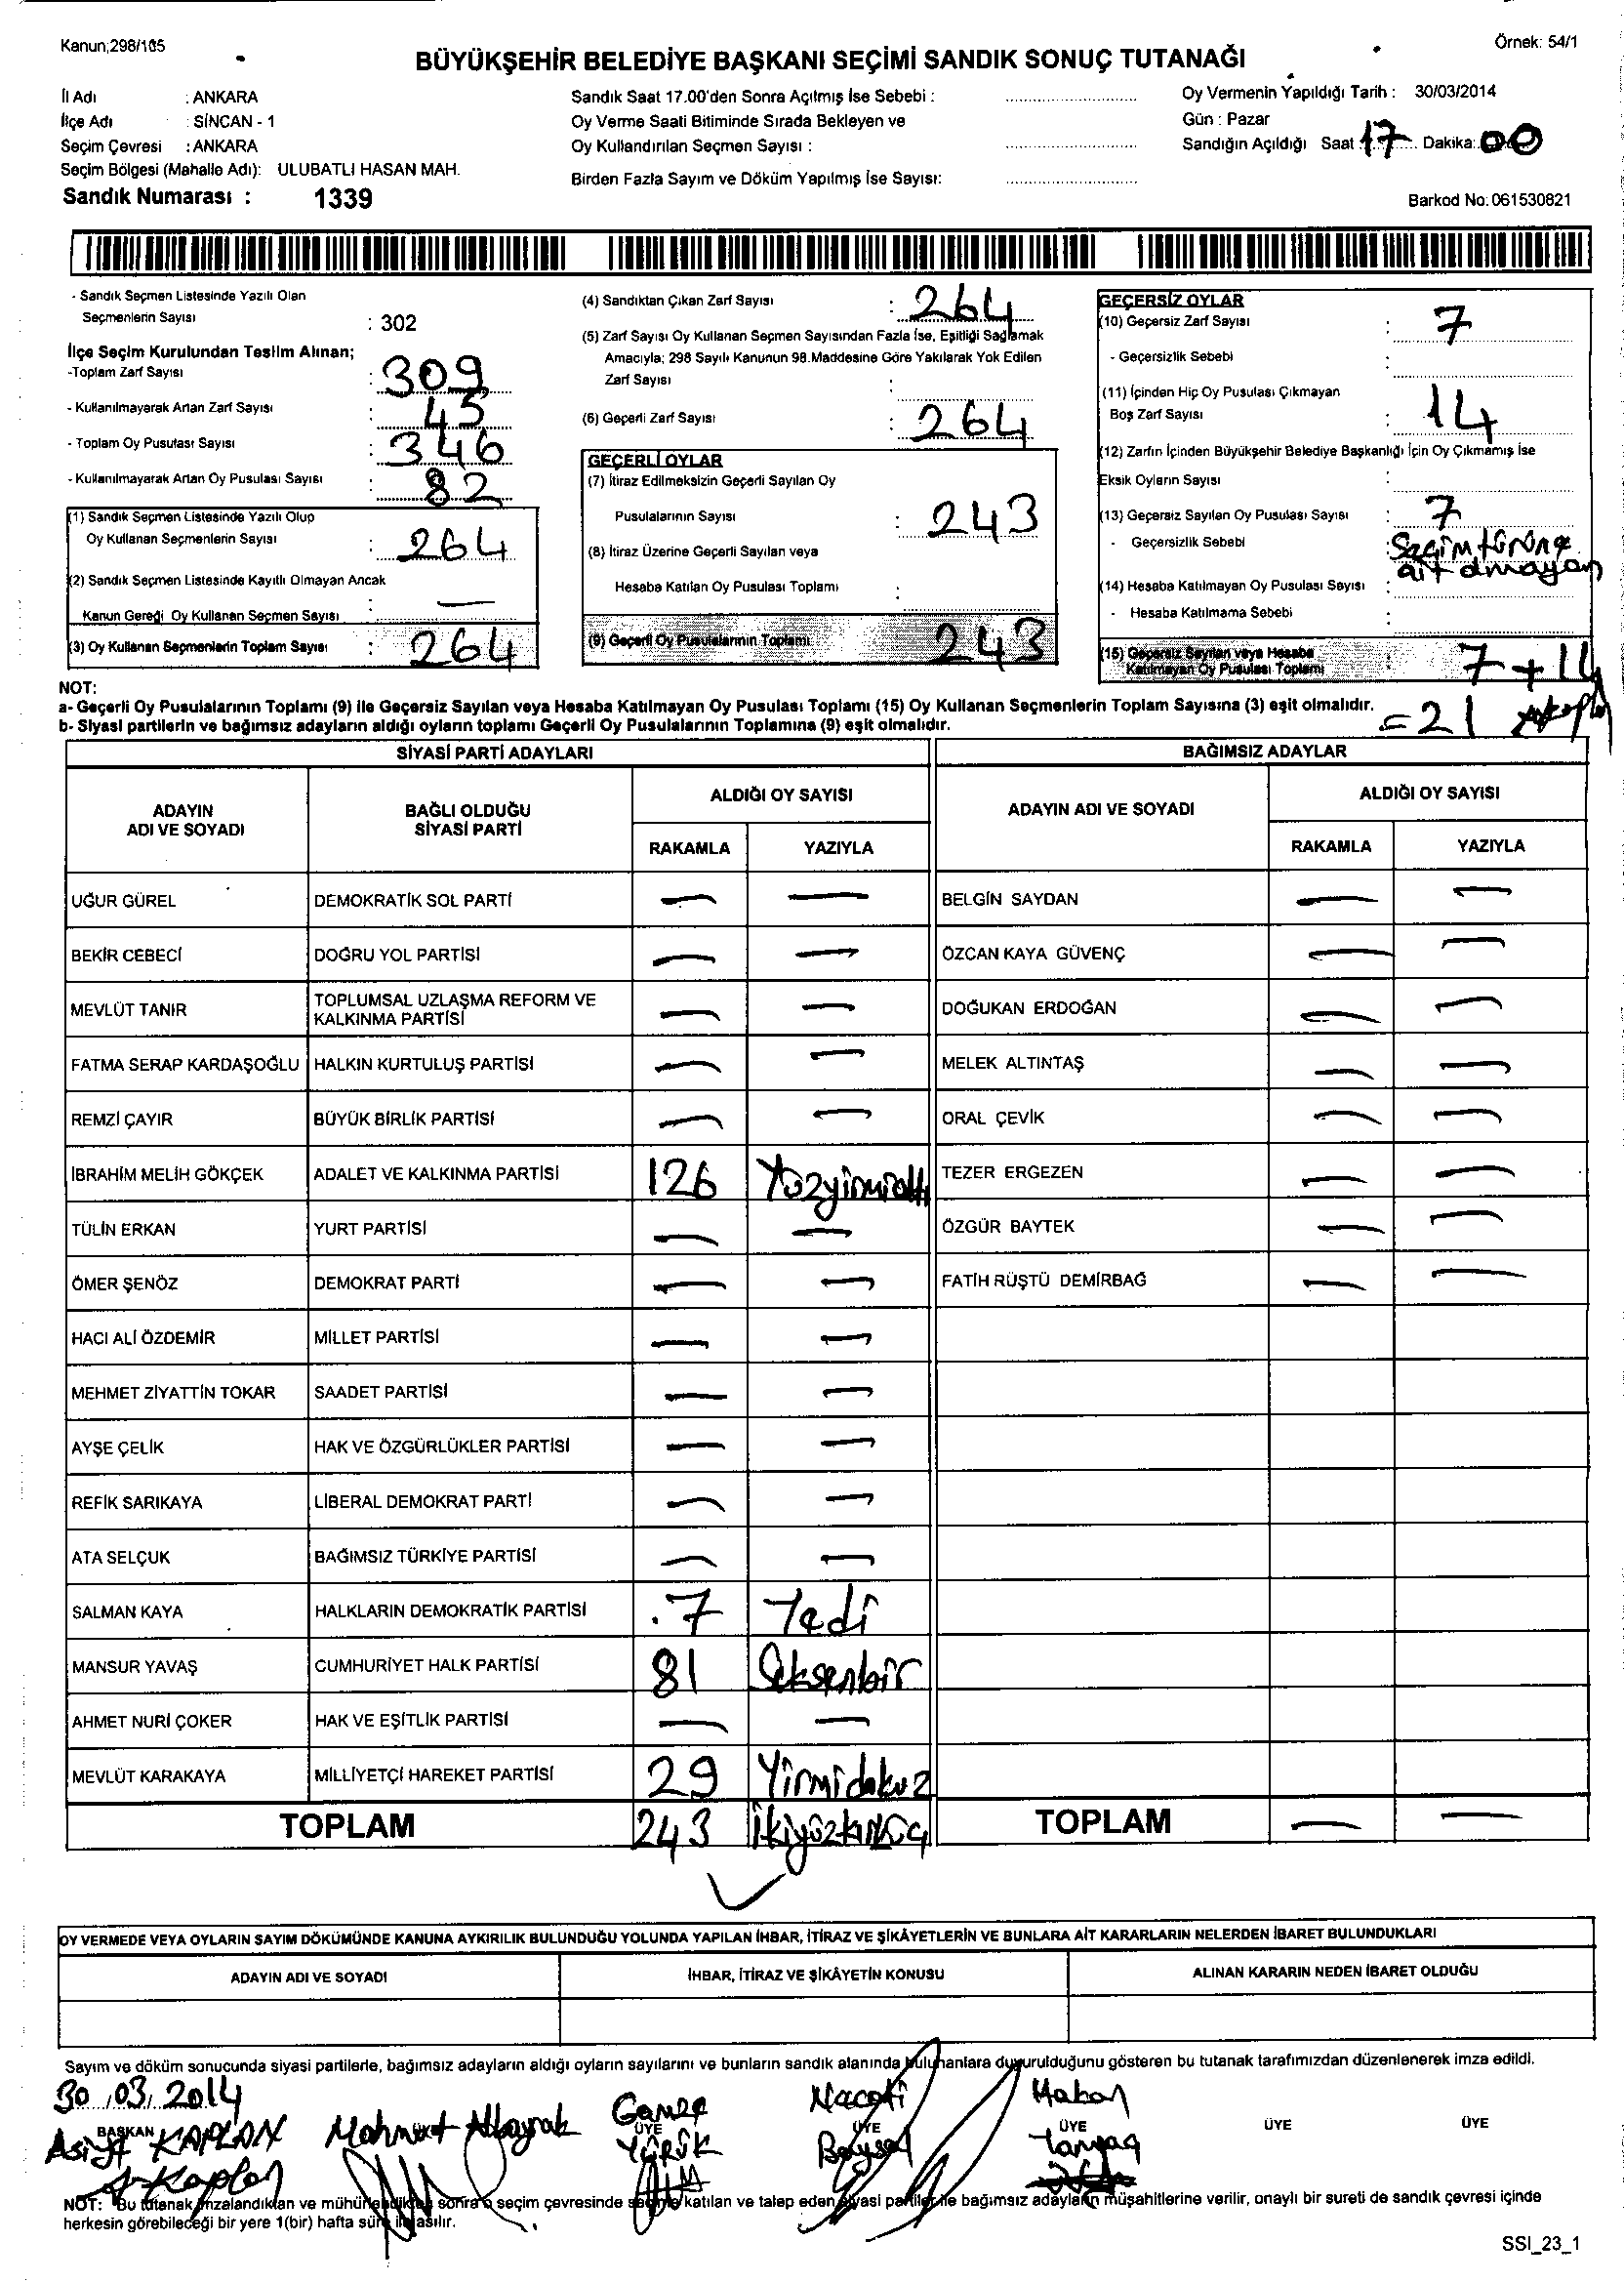 Kanun;298/105
Örnek: 54/1
BÜYÜKŞEHİR BELEDİYE BAŞKANI SEÇİMİ SANDIK SONUÇ TUTANAĞI
İl Adı : ANKARA
İlçe Adı : SİNCAN - 1
Seçim Çevresi : ANKARA
Seçim Bölgesi (Mahalle Adı): ULUBATLI HASAN MAH.
Sandık Numarası : 1339
Sandık Saat 17.00'den Sonra Açılmış İse Sebebi :
Oy Verme Saati Bitiminde Sırada Bekleyen ve
Oy Kullandırılan Seçmen Sayısı :
Birden Fazla Sayım ve Döküm Yapılmış İse Sayısı:
Oy Vermenin Yapıldığı Tarih : 30/03/2014
Gün : Pazar
Sandığın Açıldığı Saat : 17 Dakika: 00
Barkod No: 061530821
- Sandık Seçmen Listesinde Yazılı Olan
Seçmenlerin Sayısı : 302
İlçe Seçim Kurulundan Teslim Alınan;
-Toplam Zarf Sayısı : 309
- Kullanılmayarak Artan Zarf Sayısı : 45
- Toplam Oy Pusulası Sayısı : 346
- Kullanılmayarak Artan Oy Pusulası Sayısı : 82
(1) Sandık Seçmen Listesinde Yazılı Olup
Oy Kullanan Seçmenlerin Sayısı : 264
(2) Sandık Seçmen Listesinde Kayıtlı Olmayan Ancak
Kanun Gereği Oy Kullanan Seçmen Sayısı : —
(3) Oy Kullanan Seçmenlerin Toplam Sayısı : 264
(4) Sandıktan Çıkan Zarf Sayısı : 264
(5) Zarf Sayısı Oy Kullanan Seçmen Sayısından Fazla İse, Eşitliği Sağlamak
Amacıyla; 298 Sayılı Kanunun 98.Maddesine Göre Yakılarak Yok Edilen
Zarf Sayısı :
(6) Geçerli Zarf Sayısı : 264
GEÇERLİ OYLAR
(7) İtiraz Edilmeksizin Geçerli Sayılan Oy
Pusulalarının Sayısı : 243
(8) İtiraz Üzerine Geçerli Sayılan veya
Hesaba Katılan Oy Pusulası Toplamı :
(9) Geçerli Oy Pusulalarının Toplamı 243
GEÇERSİZ OYLAR
(10) Geçersiz Zarf Sayısı : 7
- Geçersizlik Sebebi :
(11) İçinden Hiç Oy Pusulası Çıkmayan
Boş Zarf Sayısı : 14
(12) Zarfın İçinden Büyükşehir Belediye Başkanlığı İçin Oy Çıkmamış İse
Eksik Oyların Sayısı :
(13) Geçersiz Sayılan Oy Pusulası Sayısı : 7
- Geçersizlik Sebebi : Seçim türüne
ait olmayan
(14) Hesaba Katılmayan Oy Pusulası Sayısı :
- Hesaba Katılmama Sebebi :
(15) Geçersiz Sayılan veya Hesaba
Katılmayan Oy Pusulası Toplamı : 7 + 14
= 21 AKaplan
NOT:
a- Geçerli Oy Pusulalarının Toplamı (9) ile Geçersiz Sayılan veya Hesaba Katılmayan Oy Pusulası Toplamı (15) Oy Kullanan Seçmenlerin Toplam Sayısına (3) eşit olmalıdır.
b- Siyasi partilerin ve bağımsız adayların aldığı oyların toplamı Geçerli Oy Pusulalarının Toplamına (9) eşit olmalıdır.
SİYASİ PARTİ ADAYLARI
ADAYIN ADI VE SOYADI
BAĞLI OLDUĞU SİYASİ PARTİ
ALDIĞI OY SAYISI
RAKAMLA YAZIYLA
UĞUR GÜREL DEMOKRATİK SOL PARTİ — —
BEKİR CEBECİ DOĞRU YOL PARTİSİ — —
MEVLÜT TANIR TOPLUMSAL UZLAŞMA REFORM VE
KALKINMA PARTİSİ — —
FATMA SERAP KARDAŞOĞLU HALKIN KURTULUŞ PARTİSİ — —
REMZİ ÇAYIR BÜYÜK BİRLİK PARTİSİ — —
İBRAHİM MELİH GÖKÇEK ADALET VE KALKINMA PARTİSİ 126 Yüzyirmialtı
TÜLİN ERKAN YURT PARTİSİ — —
ÖMER ŞENÖZ DEMOKRAT PARTİ — —
HACI ALİ ÖZDEMİR MİLLET PARTİSİ — —
MEHMET ZİYATTİN TOKAR SAADET PARTİSİ — —
AYŞE ÇELİK HAK VE ÖZGÜRLÜKLER PARTİSİ — —
REFİK SARIKAYA LİBERAL DEMOKRAT PARTİ — —
ATA SELÇUK BAĞIMSIZ TÜRKİYE PARTİSİ — —
SALMAN KAYA HALKLARIN DEMOKRATİK PARTİSİ 7 Yedi
MANSUR YAVAŞ CUMHURİYET HALK PARTİSİ 81 Seksenbir
AHMET NURİ ÇOKER HAK VE EŞİTLİK PARTİSİ — —
MEVLÜT KARAKAYA MİLLİYETÇİ HAREKET PARTİSİ 29 Yirmidokuz
TOPLAM 243 İkiyüzkırküç
BAĞIMSIZ ADAYLAR
ADAYIN ADI VE SOYADI
ALDIĞI OY SAYISI
RAKAMLA YAZIYLA
BELGİN SAYDAN — —
ÖZCAN KAYA GÜVENÇ — —
DOĞUKAN ERDOĞAN — —
MELEK ALTINTAŞ — —
ORAL ÇEVİK — —
TEZER ERGEZEN — —
ÖZGÜR BAYTEK — —
FATİH RÜŞTÜ DEMİRBAĞ — —
TOPLAM — —
OY VERMEDE VEYA OYLARIN SAYIM DÖKÜMÜNDE KANUNA AYKIRILIK BULUNDUĞU YOLUNDA YAPILAN İHBAR, İTİRAZ VE ŞİKÂYETLERİN VE BUNLARA AİT KARARLARIN NELERDEN İBARET BULUNDUKLARI
ADAYIN ADI VE SOYADI
İHBAR, İTİRAZ VE ŞİKÂYETİN KONUSU
ALINAN KARARIN NEDEN İBARET OLDUĞU
Sayım ve döküm sonucunda siyasi partilerle, bağımsız adayların aldığı oyların sayılarını ve bunların sandık alanında bulunanlara duyurulduğunu gösteren bu tutanak tarafımızdan düzenlenerek imza edildi.
30/03/2014
BAŞKAN
Asiye KAPLAN
AKaplan
Mahmut Albayrak
Gamze
ÜYE
YÜRÜK
Necati
ÜYE
Baysal
Hakan
ÜYE
ÜYE
ÜYE
NOT: Bu tutanak imzalandıktan ve mühürlendikten sonra o seçim çevresinde seçime katılan ve talep eden siyasi partiler ile bağımsız adayların müşahitlerine verilir, onaylı bir sureti de sandık çevresi içinde
herkesin görebileceği bir yere 1(bir) hafta süre ile asılır.
SSI_23_1